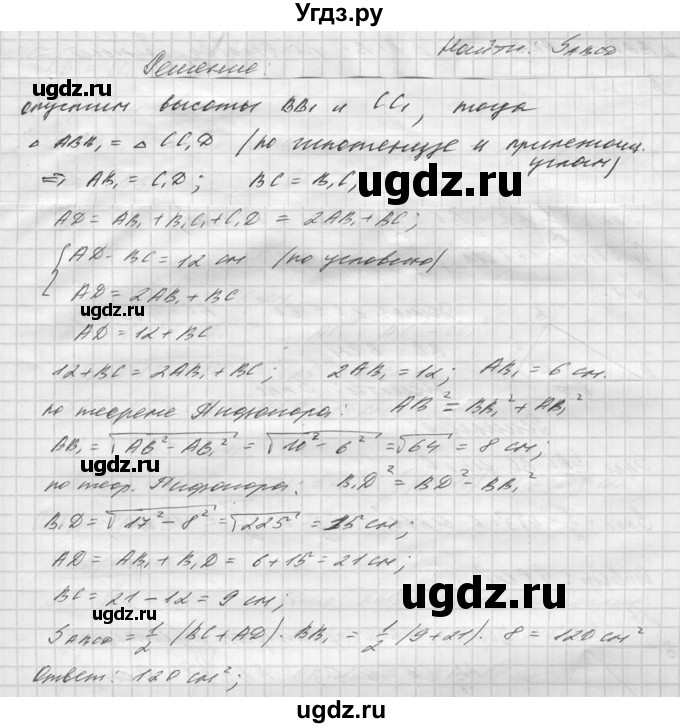 Угдз.ру
Найти: S_ABCD
Решение:
опустим высоты BB₁ и CC₁, тогда
△ ABB₁ = △ CC₁D (по гипотенузе и прилежащ.
углам)
⇒ AB₁ = C₁D; BC = B₁C₁
ugdz.ru
AD = AB₁ + B₁C₁ + C₁D = 2AB₁ + BC;
ugdz.ru
{ AD - BC = 12 см (по условию)
AD = 2AB₁ + BC
ugdz.ru
AD = 12 + BC
12 + BC = 2AB₁ + BC; 2AB₁ = 12; AB₁ = 6 см.
по теореме Пифагора: AB² = BB₁² + AB₁²
ugdz.ru
BB₁ = √AB² - AB₁² = √10² - 6² = √64 = 8 см;
ugdz.ru
по теор. Пифагора: B₁D² = BD² - BB₁²
B₁D = √17² - 8² = √225 = 15 см;
ugdz.ru
AD = AB₁ + B₁D = 6 + 15 = 21 см;
ugdz.ru
BC = 21 - 12 = 9 см;
ugdz.ru
S_ABCD = 1/2 (BC + AD) · BB₁ = 1/2 (9 + 21) · 8 = 120 см²
Ответ: 120 см²;
ugdz.ru
ugdz.ru